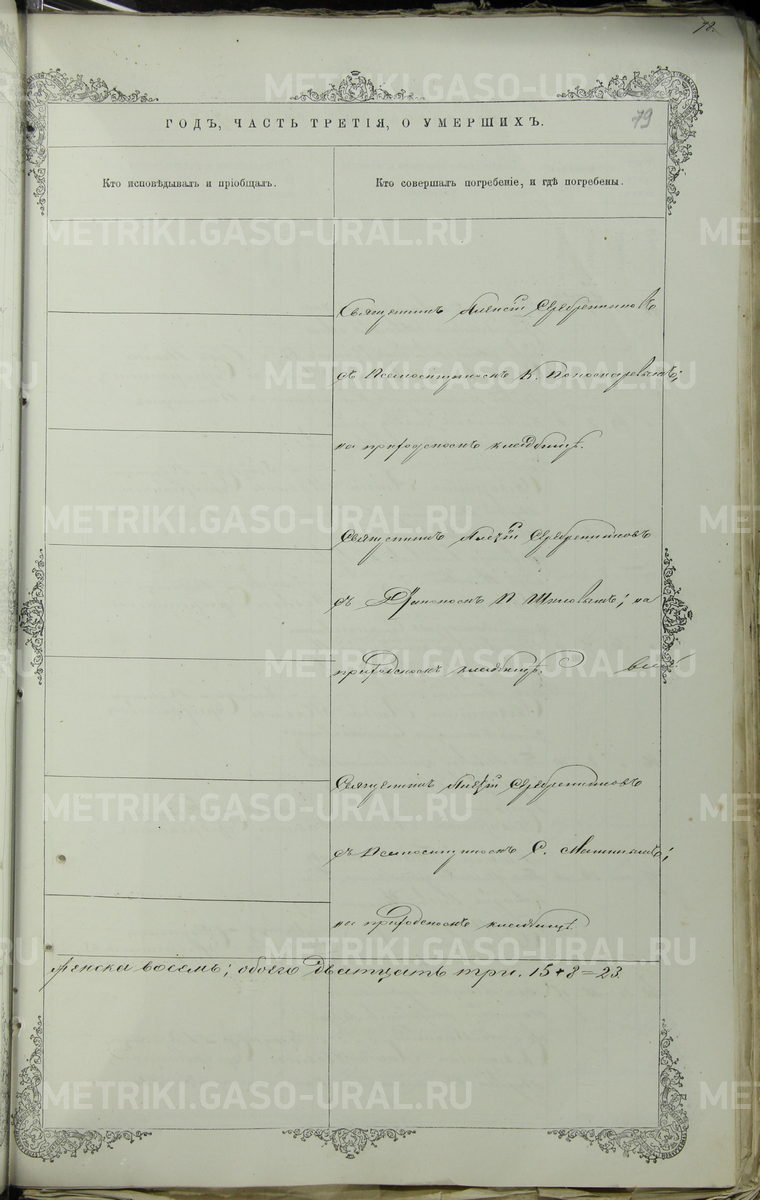 78.
79
ГОДЪ, ЧАСТЬ ТРЕТІЯ, О УМЕРШИХЪ.
Кто исповѣдывалъ и пріобщалъ.
Кто совершалъ погребеніе, и гдѣ погребены.
Священникъ Алексій Серебренниковъ
съ Псаломщикомъ К. Пономаревымъ;
на приходскомъ кладбищѣ.
Священникъ Алексій Серебренниковъ
съ Діакономъ П. Шиловымъ; на
приходскомъ кладбищѣ.
Священникъ Алексій Серебренниковъ
съ Псаломщикомъ С.
на приходскомъ кладбищѣ.
женска восемь; обоего двадцать три. 15+8=23.
METRIKI.GASO-URAL.RU